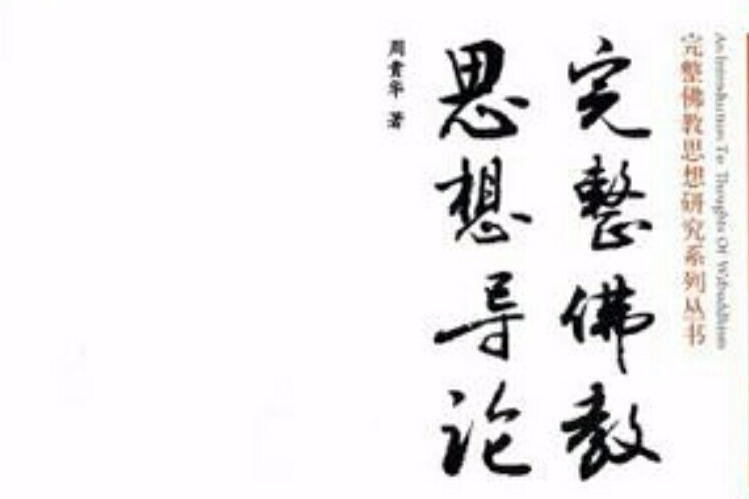 An Introduction To Thoughts Of Wabuddhism
完整佛教思想研究系列丛书
完整佛教
思想导论
周贵华 著